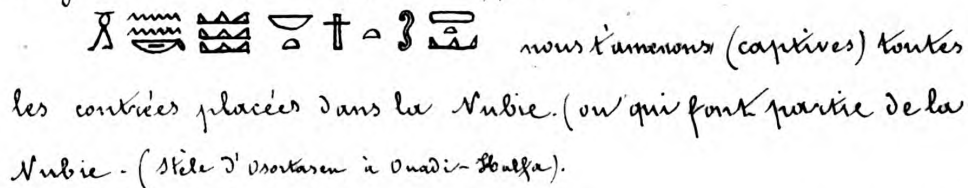 nous t'amenons (captives) toutes
les contrées placées dans la Nubie. (ou qui font partie de la
Nubie - (Stèle d'Osortasen à Ouadi-Halfa).